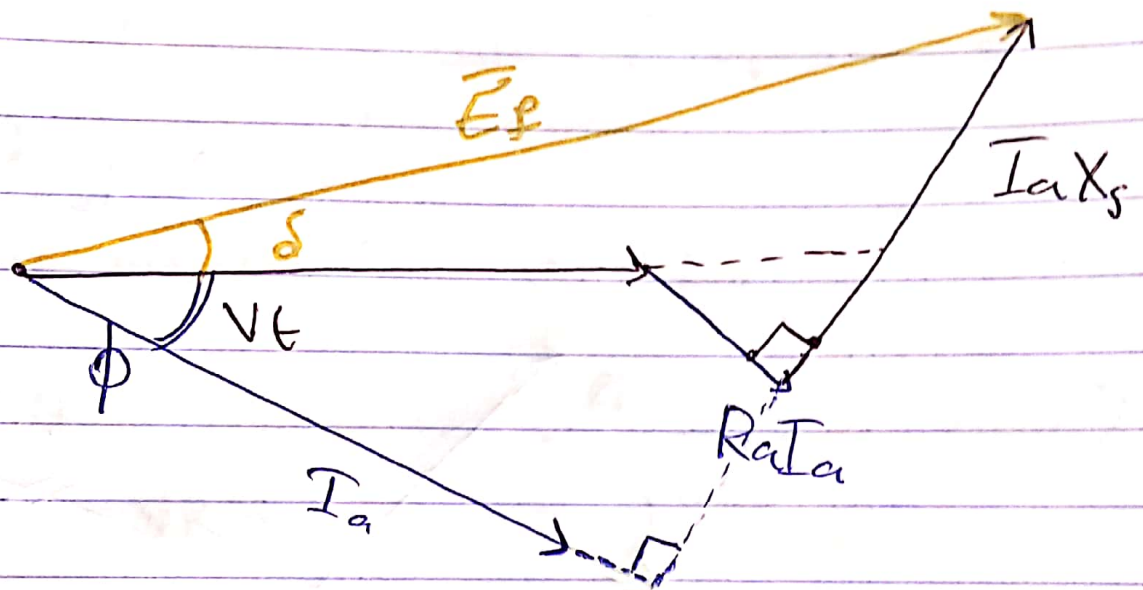 Ēf
ĪaXs
δ
Vt
ϕ
RaIa
Īa